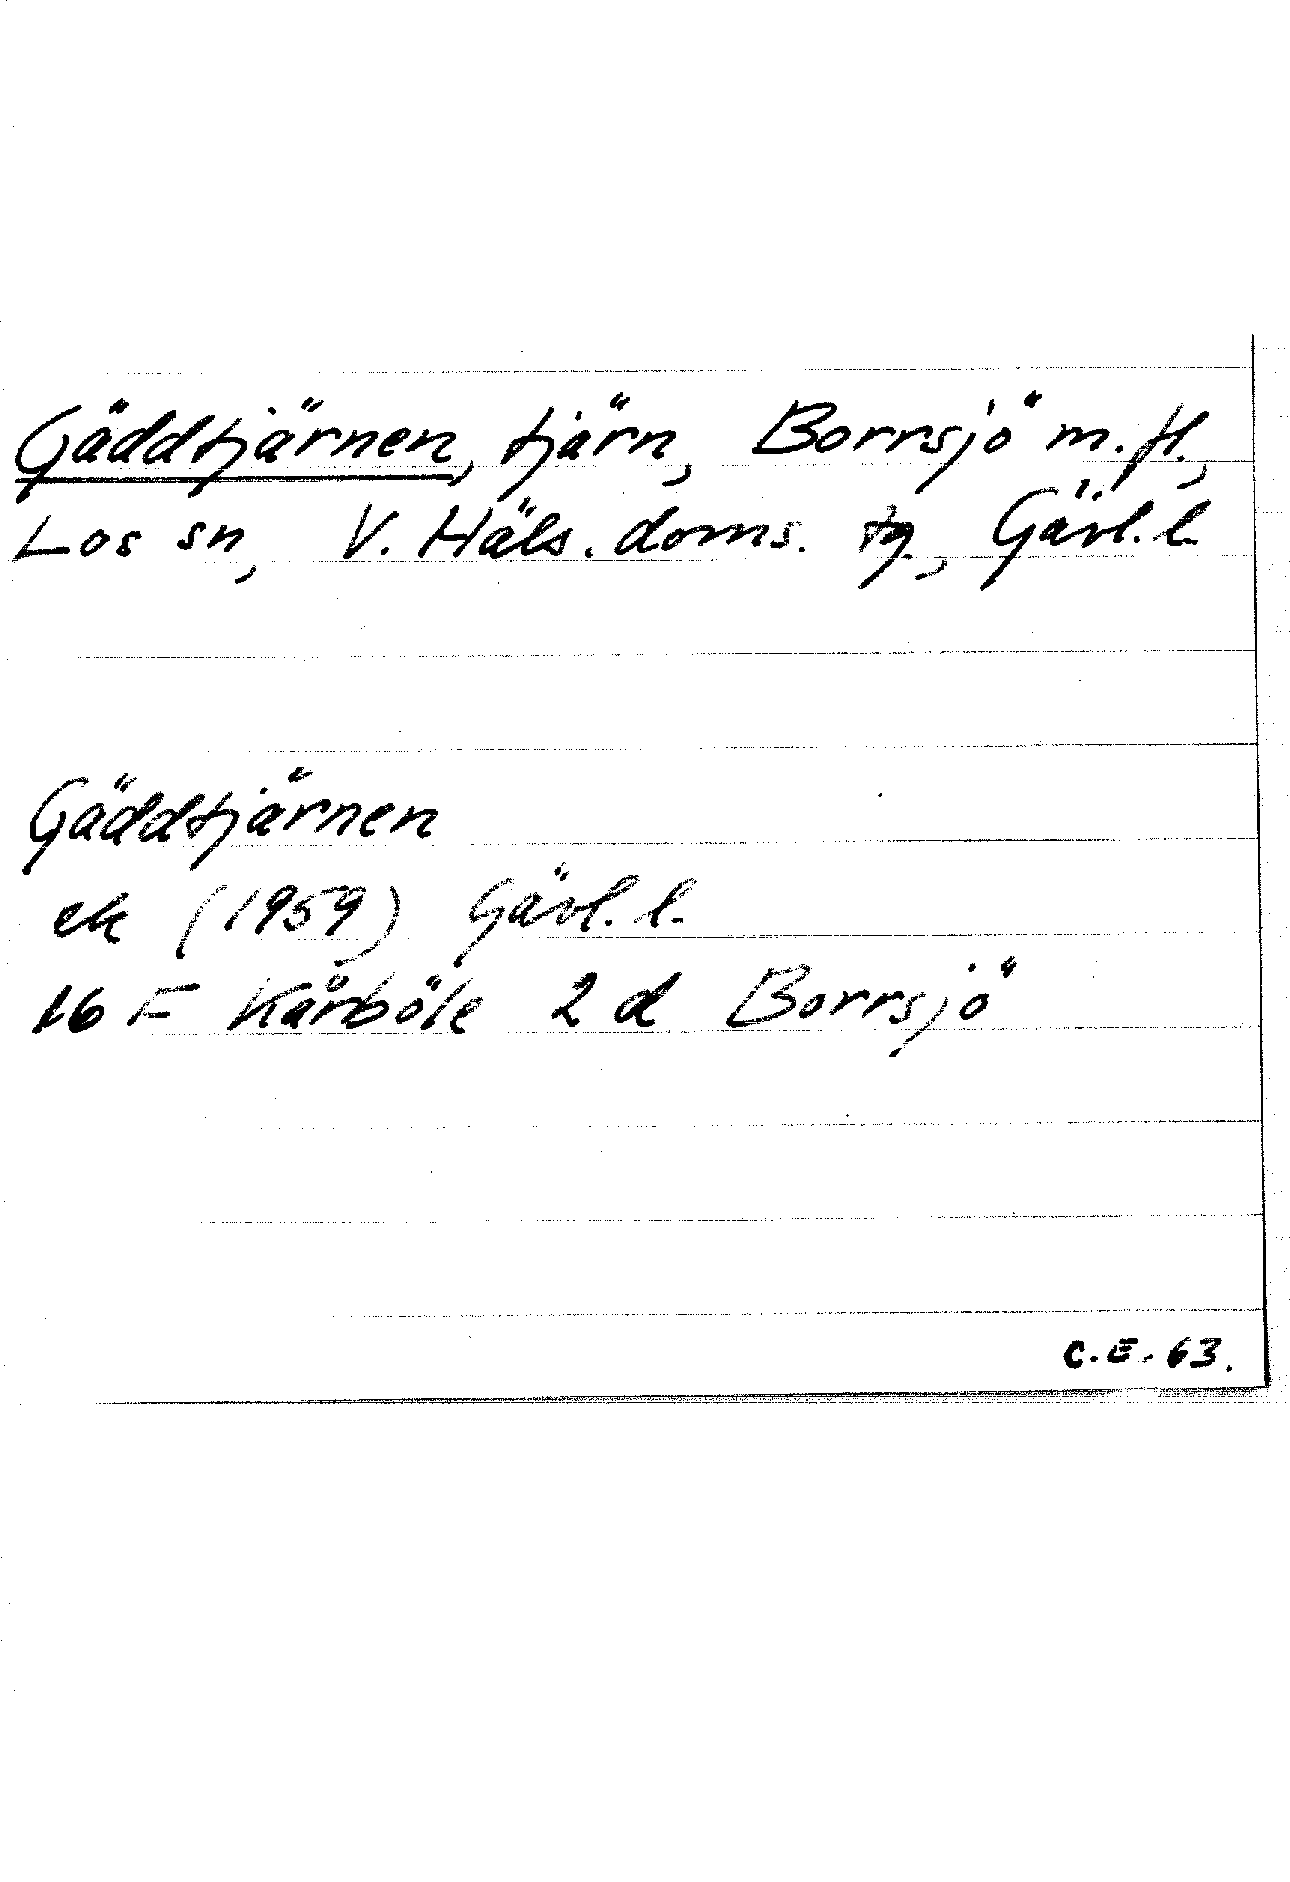 Gäddtjärnen, tjärn, Borrsjö m.fl.,
Los sn, V. Häls. doms. tg., Gävl. l.
Gäddtjärnen
ek (1959) Gävl. l.
16 F Kårböle 2 d Borrsjö
C.E. 63.